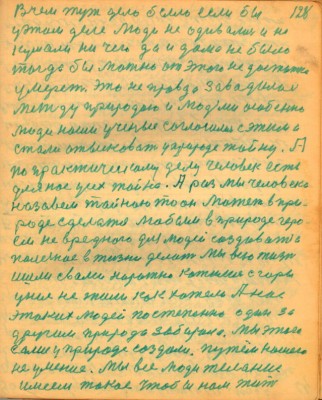 В чем тут дело было если бы 128
у этом деле люди не одивали и не
кушали ни чего да и дома не было
тогда бы можно от этого не достатка
умереть. Это не правда заводилася
между природою и людми особенно
люди наши ученые согласилися с этим и
стали отвековать у природе тайну. А
по практическому делу человек есть
для нас усех тайна. А раз мы человека
назовем тайною то он может в при-
роде сделатся мобыли в природе геро-
ем не вредного для людей создавать а
полезное в жизни делит. Мы всю жизт
ишли свами наротно катышё с горы
у нее не жили как хотели А нас
этаких людей постепенно один за
другим природа забирала. Мы этого
сами у природе создали. путём нашего
не умения. Мы все люди желание
имеем такое чтобы нам жит